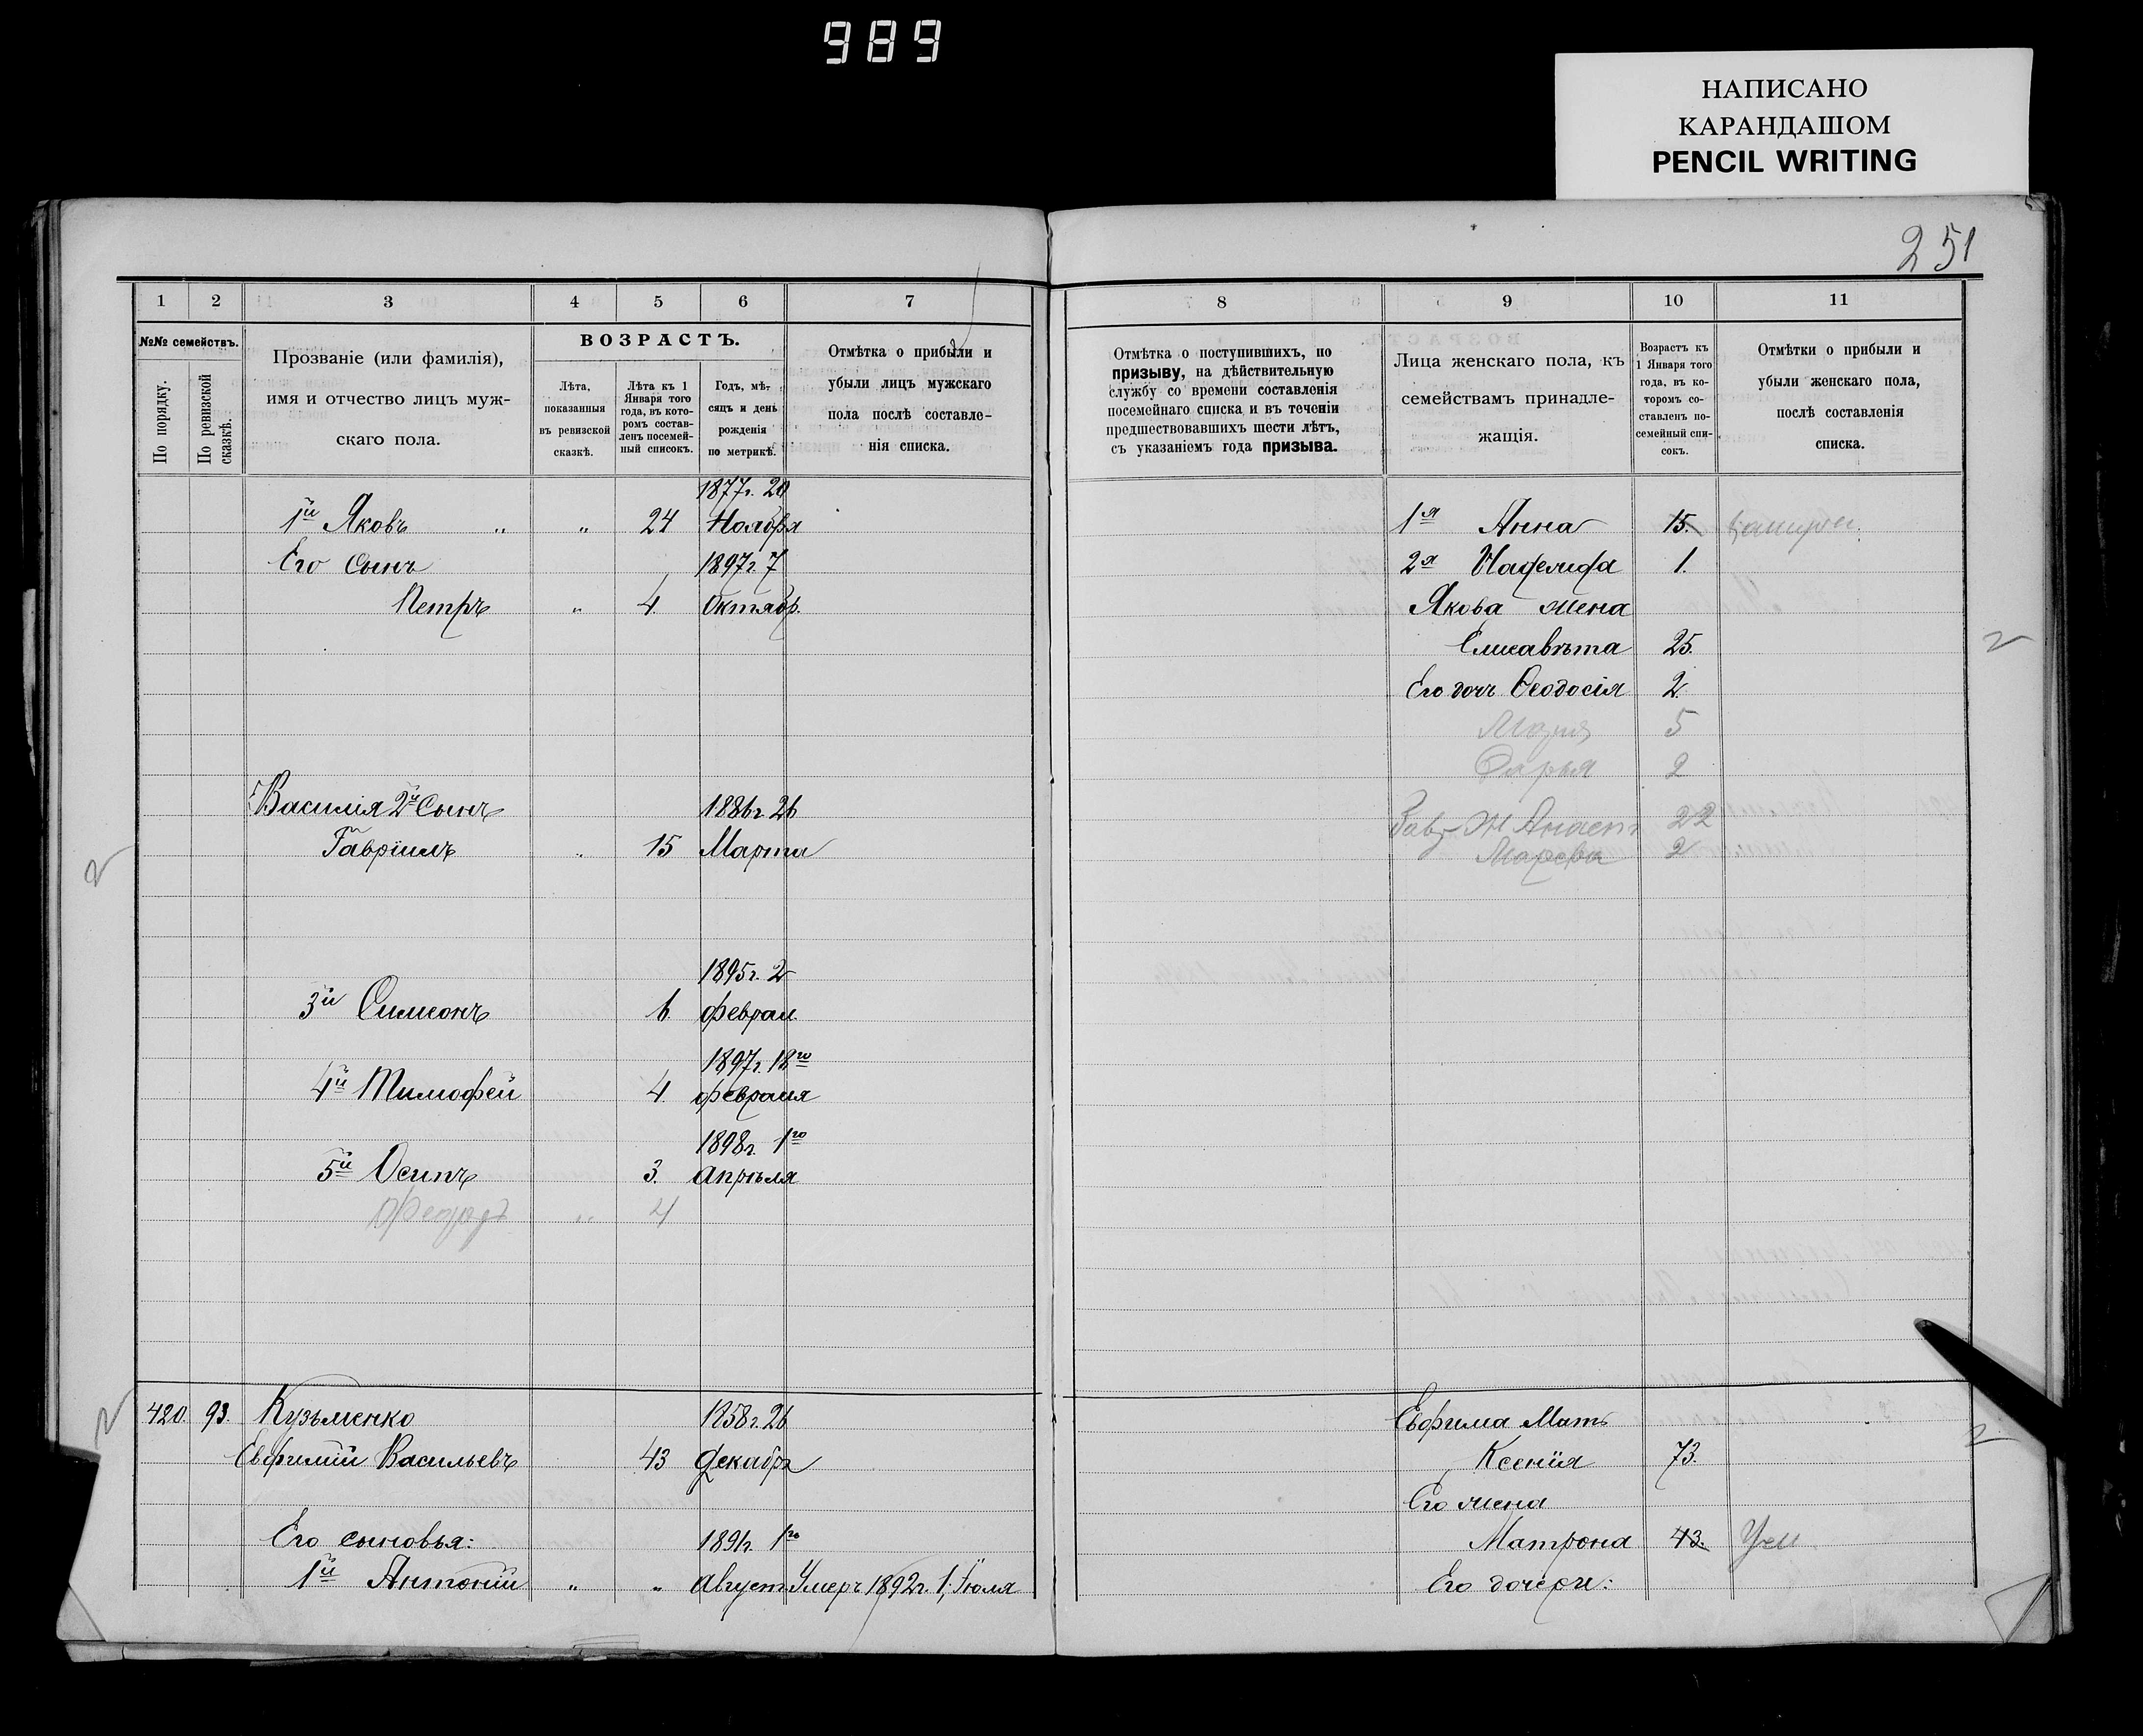 989
НАПИСАНО
КАРАНДАШОМ
PENCIL WRITING
251
1 2 3 4 5 6 7
№№ семействъ.
По порядку.
По ревизской сказкѣ.
Прозваніе (или фамилія),
имя и отчество лицъ муж-
скаго пола.
ВОЗРАСТЪ.
Лѣта,
показанныя
въ ревизской
сказкѣ.
Лѣта къ 1
Января того
года, въ кото-
ромъ состав-
ленъ посемей-
ный списокъ.
Годъ, мѣт
сяцъ и день
рожденія
по метрикѣ.
Отмѣтка о прибыли и
убыли лицъ мужскаго
пола послѣ составле-
нія списка.
1877г. 20
1й Яковъ " " 24 Ноября
Его Сынъ 1897г. 7
Петръ " 4. Октябр.
Василія 2й Сынъ 1886г. 26
Гавріилъ " 15 Марта
1895г. 2
3й Симеонъ 6. феврал.
1897г. 18го
4й Тимофей 4. февраля
1898г. 1го
5й Осипъ 3. Апрѣля
" 4
420. 93. Кузьменко 1858г. 26
Евфимій Васильевъ 43 Декабря
Его сыновья: 1891г. 1го
1й Антоній " " Август. Умеръ 1892г. 1, Іюля
8 9 10 11
Отмѣтка о поступившихъ, по
призыву, на дѣйствительную
службу со времени составленія
посемейнаго списка и въ теченіи
предшествовавшихъ шести лѣтъ,
съ указаніемъ года призыва.
Лица женскаго пола, къ
семействамъ принадле-
жащія.
Возрастъ къ
1 Января того
года, въ ко-
торомъ со-
ставленъ по-
семейный спи-
сокъ.
Отмѣтки о прибыли и
убыли женскаго пола,
послѣ составленія
списка.
1я Анна 15.
2я 1.
Якова жена
Елисавѣта 25.
Его доч. Ѳеодосія 2.
Марія 5
Дарья 2
22
Марфа 2
Евфима Мать
Ксенія 73.
Его жена
Матрона 43. Ум
Его дочери: